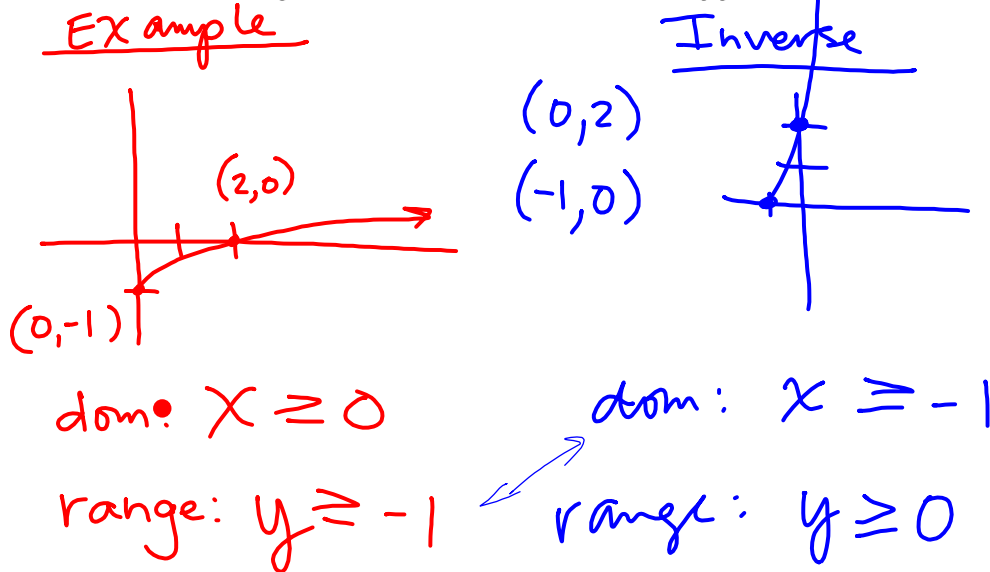 Example
(2,0)
(0,-1)
dom: X ≥ 0
range: y ≥ -1
Inverse
(0,2)
(-1,0)
dom: x ≥ -1
range: y ≥ 0